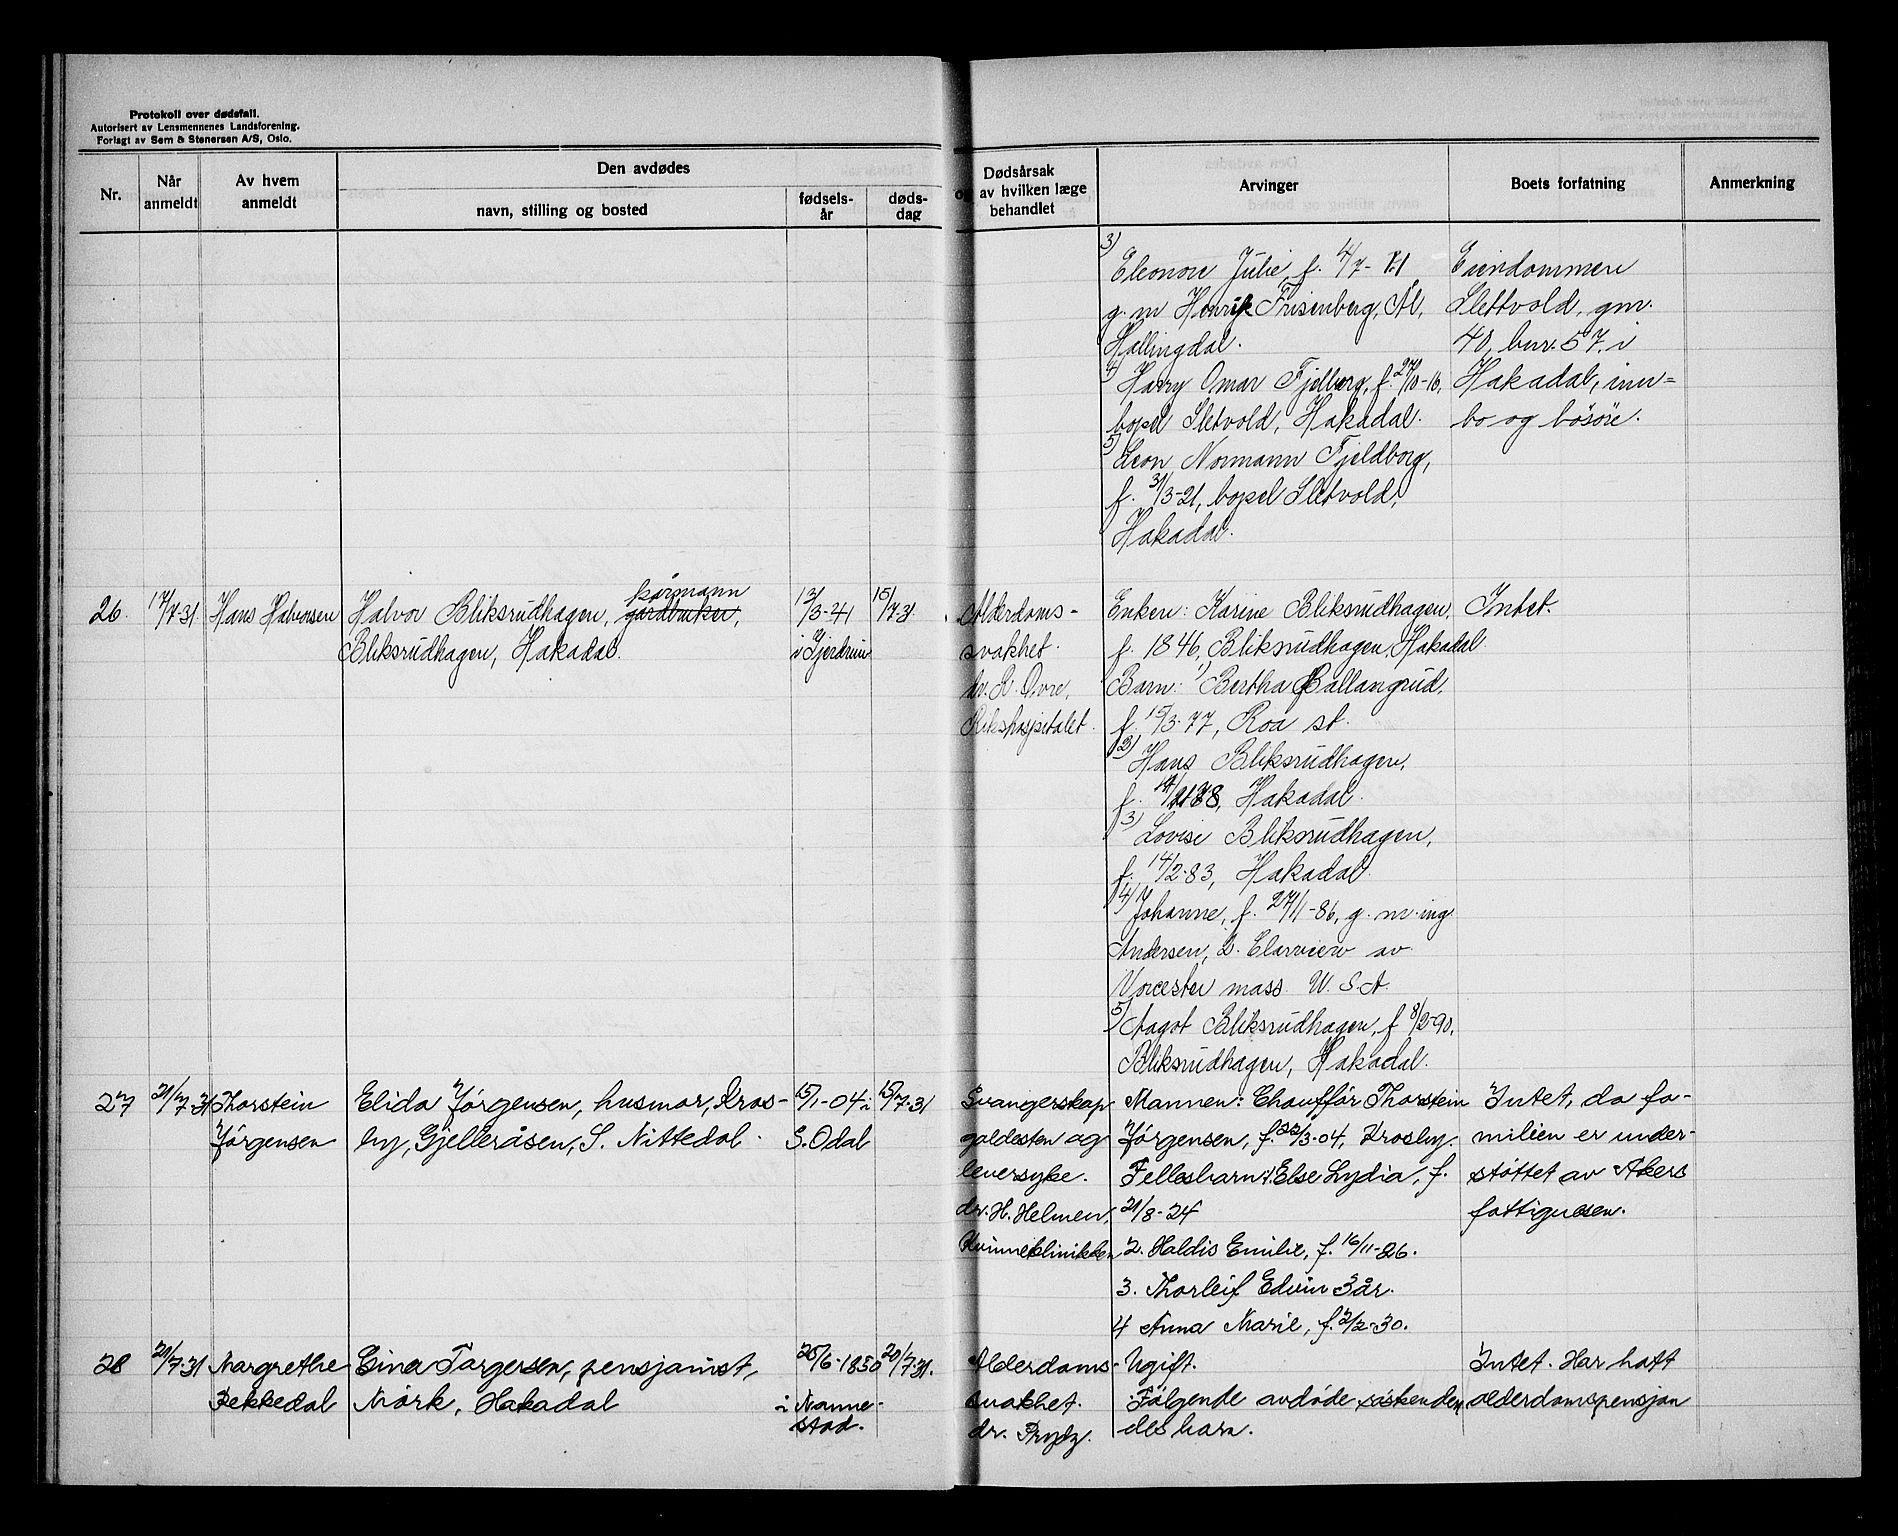 Protokoll over dødsfall.
Autorisert av Lensmennenes Landsforening.
Forlagt av Sem & Stenersen A/S, Oslo.
Nr.
Når anmeldt
Av hvem anmeldt
Den avdødes
navn, stilling og bosted
fødsels-år
døds-dag
Dødsårsak
og av hvilken læge
behandlet
Arvinger
Boets forfatning
Anmerkning
3) Eleonore Julie, f. 4/7-
g. m Henrik Frisenberg, Ål,
Hallingdal.
4) Harry Omar Fjelborg, f. 27/10-16,
bopel Sletvold, Hakadal.
5) Leon Normann Fjeldborg,
f. 31/3-21, bopel Sletvold,
Hakadal.
Eiendommen
Slettvold, gnr.
40, bnr. 57, i
Hakadal, inn=
bo og løsøre.
26. 17/7-31 Hans Halvorsen
Halvor Bliksrudhagen, gårdbruker, kjørmann
Bliksrudhagen, Hakadal.
13/3-41
i Gjerdrum
15/7-31
Alderdoms-
svakhet.
dr. Øvre,
Rikshospitalet.
Enken: Karine Bliksrudhagen,
f. 1846, Bliksrudhagen, Hakadal
Barn: 1) Bertha Ballangrud,
f. 15/3-77, Roa st.
2) Hans Bliksrudhagen,
f. Hakadal.
3) Lovise Bliksrudhagen,
f. 14/2-83, Hakadal.
4) Johanne, f. 27/11-86, g. m. ing.
Andersen, 2. Clarview av
Vorcester mass U. S. A.
5) Aagot Bliksrudhagen, f 8/2-90,
Bliksrudhagen, Hakadal.
Intet.
27 21/7-31 Thorstein
Jørgensen
Elida Jørgensen, husmor, Kros-
by, Gjelleråsen, S. Nittedal.
15/1-04 i
S. Odal
15/7-31
Svangerskap
galdesten og
leversyke.
dr. H. Helmen,
Kvinneklinikken
Mannen: Chauffør Thorstein
Jørgensen, f. 22/3-04, Krosby.
Fellesbarn: 1. Else Lydia, f.
21/8-24
2. Haldis Emilie, f. 16/11-26.
3. Thorleif Edvin 3 år.
4 Anna Marie, f. 2/2-30.
Intet, da fa-
milien er under-
støttet av Akers
fattigvesen.
28 21/7-31 Margrethe
Bekkedal
Gina Torgersen, pensjonist,
Mørk, Hakadal
26/6-1850
i Nanne-
stad.
20/7-31.
Alderdoms-
svakhet.
dr. Prydz.
Ugift.
Følgende avdøde søsken
des barn.
Intet. Har hatt
alderdomspensjon